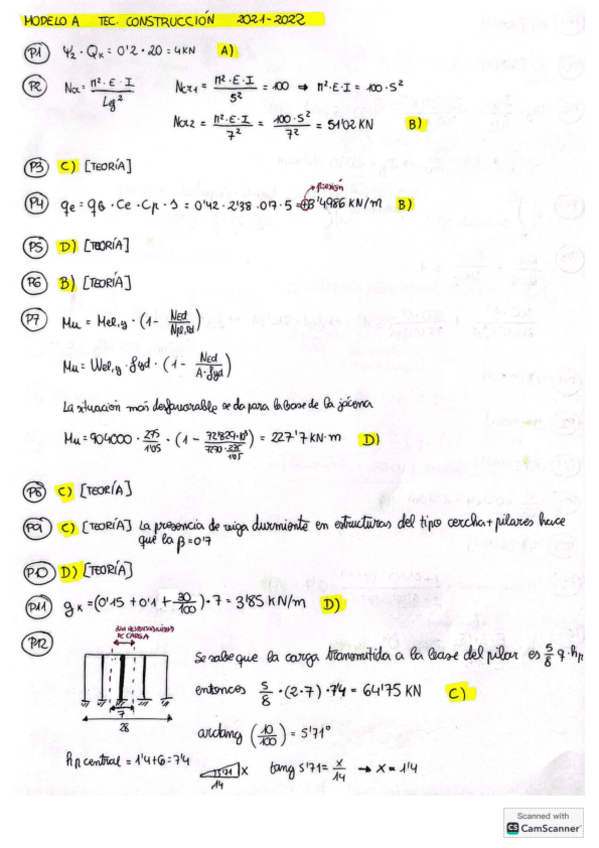 MODELO A TEC. CONSTRUCCIÓN 2021-2022
P1 Ψ2 · Qk = 0'2 · 20 = 4KN A)
P2 Ncr = π²·E·I / Lg² Ncr1 = π²·E·I / 5² = 100 ⇒ π²·E·I = 100·5²
Ncr2 = π²·E·I / 7² = 100·5² / 7² = 51'02 KN B)
P3 C) [TEORÍA]
presión
P4 qe = qb · Ce · Cp · s = 0'42 · 2'38 · 0'7 · 5 = +3'4986 KN/m B)
P5 D) [TEORÍA]
P6 B) [TEORÍA]
P7 Mu = Mel,y · (1 - Ned / Npl,Rd)
Mu = Wel,y · fyd · (1 - Ned / A·fyd)
La situación más desfavorable se da para la base de la jácena
Mu = 904000 · 275 / 1'05 · (1 - 72'829·10³ / 7270 · 275 / 1'05) = 227'7 KN·m D)
P8 C) [TEORÍA]
P9 C) [TEORÍA] La presencia de viga durmiente en estructuras del tipo cercha + pilares hace
que la β = 0'7
P10 D) [TEORÍA]
P11 gk = (0'15 + 0'1 + 30 / 100) · 7 = 3'85 KN/m D)
P12
DE CARGA
Se sabe que la carga transmitida a la base del pilar es 5/8 q · hp
entonces 5/8 · (2·7) · 7'4 = 64'75 KN C)
7
28
arctang (10/100) = 5'71°
hp central = 1'4 + 6 = 7'4 5'71 X 14 tang 5'71 = x / 14 → x = 1'4
Scanned with
CS CamScanner